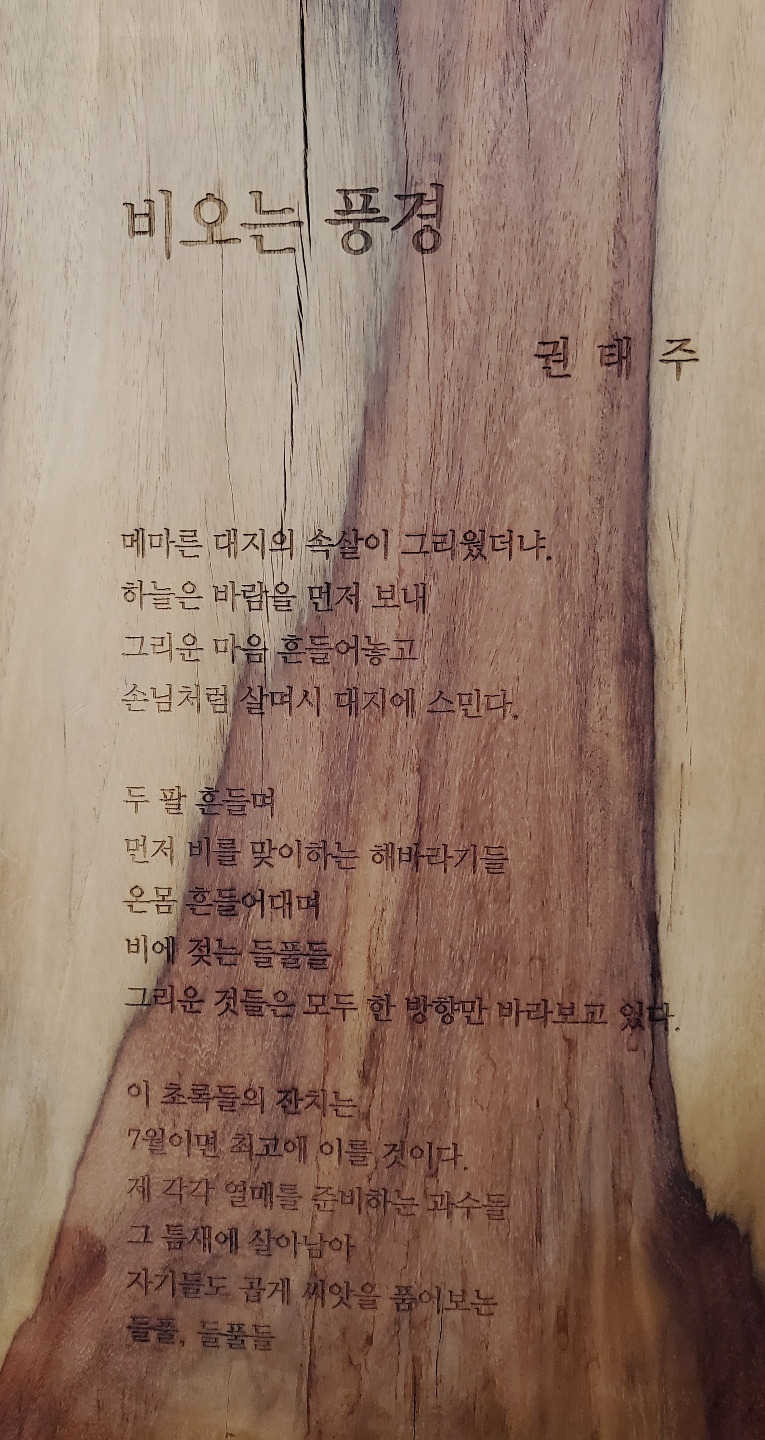 비오는 풍경
권 태 주
메마른 대지의 속살이 그리웠더냐.
하늘은 바람을 먼저 보내
그리운 마음 흔들어놓고
손님처럼 살며시 대지에 스민다.
두 팔 흔들며
먼저 비를 맞이하는 해바라기들
온몸 흔들어대며
비에 젖는 들풀들
그리운 것들은 모두 한 방향만 바라보고 있다.
이 초록들의 잔치는
7월이면 최고에 이를 것이다.
제 각각 열매를 준비하는 과수들
그 틈새에 살아남아
자기들도 곱게 씨앗을 품어보는
들풀, 들풀들